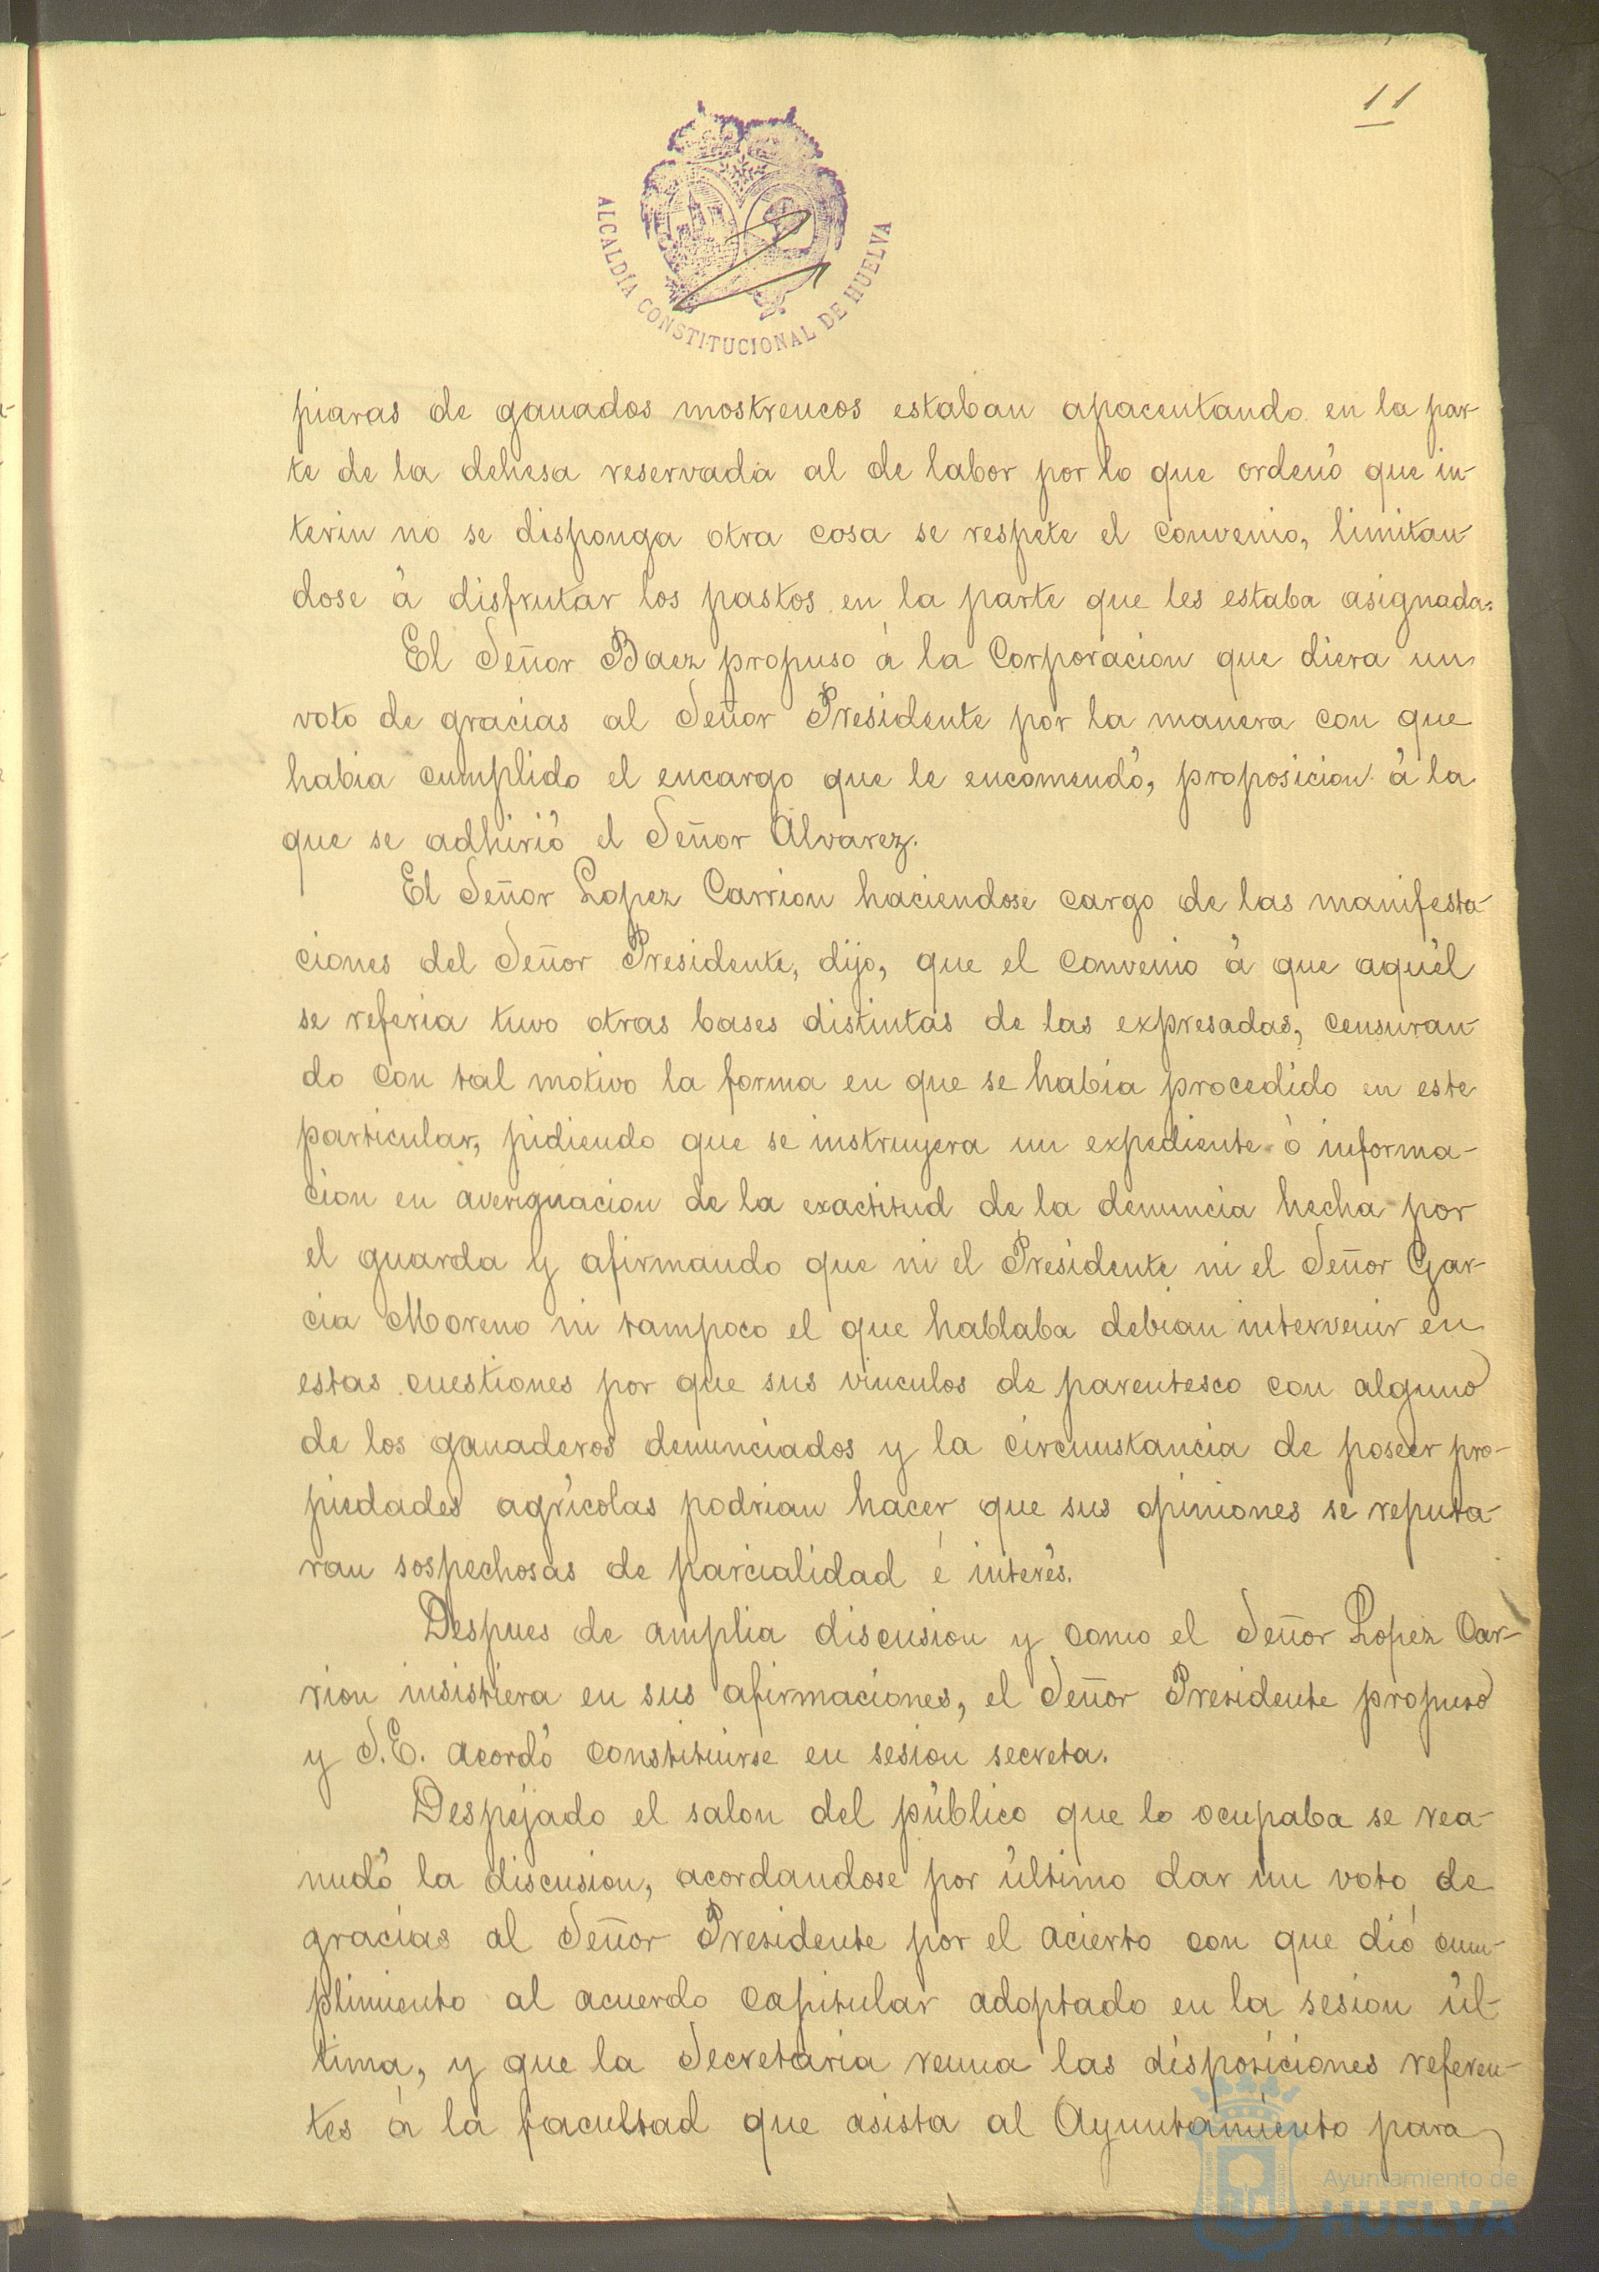 11
ALCALDÍA CONSTITUCIONAL DE HUELVA
piaras de ganados mostrencos estaban apacentando en la par-
te de la dehesa reservada al de labor por lo que ordenó que in-
terin no se disponga otra cosa se respete el convenio, limitan-
dose á disfrutar los pastos en la parte que les estaba asignada.
El Señor Baez propuso á la Corporacion que diera un
voto de gracias al Señor Presidente por la manera con que
habia cumplido el encargo que le encomendó, proposicion á la
que se adhirió el Señor Alvarez.
El Señor Lopez Carrion haciendose cargo de las manifesta-
ciones del Señor Presidente, dijo, que el convenio á que aquél
se referia tuvo otras bases distintas de las expresadas, censuran-
do con tal motivo la forma en que se había procedido en este
particular, pidiendo que se instruyera un expediente ó informa-
cion en averiguacion de la exactitud de la denuncia hecha por
el guarda y afirmando que ni el Presidente ni el Señor Gar-
cia Moreno ni tampoco el que hablaba debian intervenir en
estas cuestiones por que sus vinculos de parentesco con alguno
de los ganaderos denunciados y la circunstancia de poseer pro-
piedades agrícolas podrian hacer que sus opiniones se reputa-
ran sospechosas de parcialidad é interés.
Despues de amplia discusion y como el Señor Lopez Car-
rion insistiera en sus afirmaciones, el Señor Presidente propuso
y S.E. acordó constituirse en sesion secreta.
Despejado el salon del público que lo ocupaba se rea-
nudó la discusion, acordandose por último dar un voto de
gracias al Señor Presidente por el acierto con que dió cum-
plimiento al acuerdo capitular adoptado en la sesion úl-
tima, y que la Secretaria reuna las disposiciones referen-
tes á la facultad que asista al Ayuntamiento para
Ayuntamiento de
HUELVA